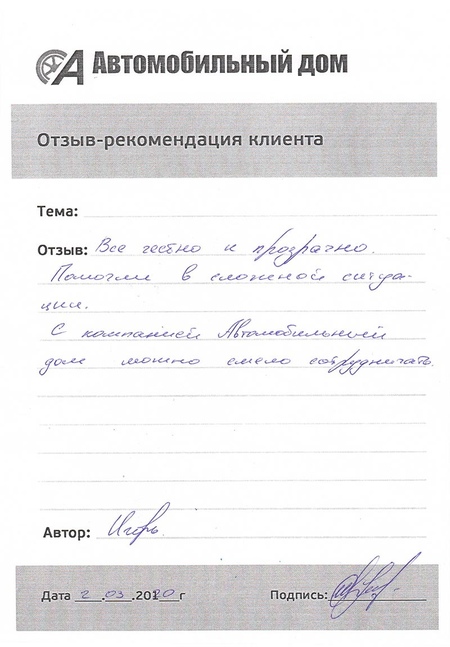 Автомобильный дом
Отзыв-рекомендация клиента
Тема:
Отзыв: Все честно и прозрачно.
Помогли в сложной ситуа-
ции.
С компанией Автомобильный
дом можно смело сотрудничать.
Автор: Игорь
Дата 2.03.2020г Подпись: